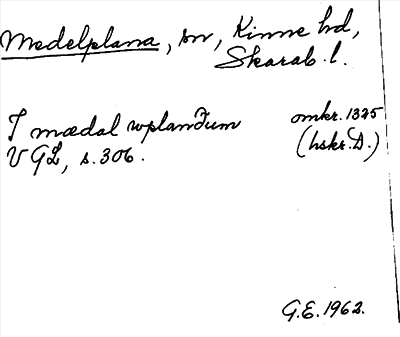 Medelplana, sn, Kinne hd,
Skarab. l.
I mædal wplandum omkr. 1325
VGL, s. 306. (hskr. D.)
G.E. 1962.